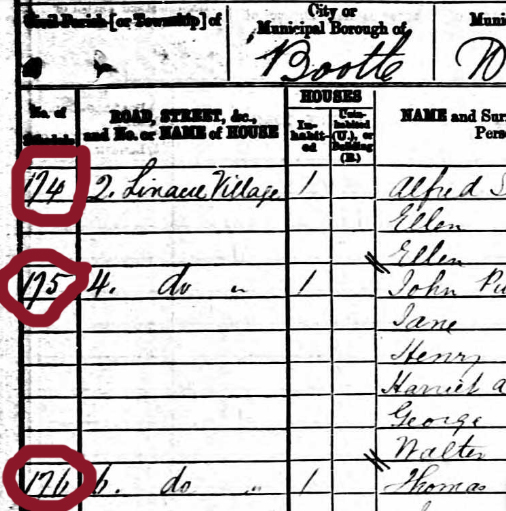 Civil Parish [or Township] of
City or
Municipal Borough of
Muni
Bootle
No. of
Schedule
ROAD, STREET, &c.,
and No. or NAME of HOUSE
HOUSES
In-
habit-
ed
Unin-
habited
(U.), or
Building
(B.)
NAME and Sur
Pers
174 2. Linacre Village 1 Alfred S
Ellen
Ellen
175 4. do " 1 John Pu
Jane
Henry
Harriet a
George
Walter
176 6. do " 1 Thomas